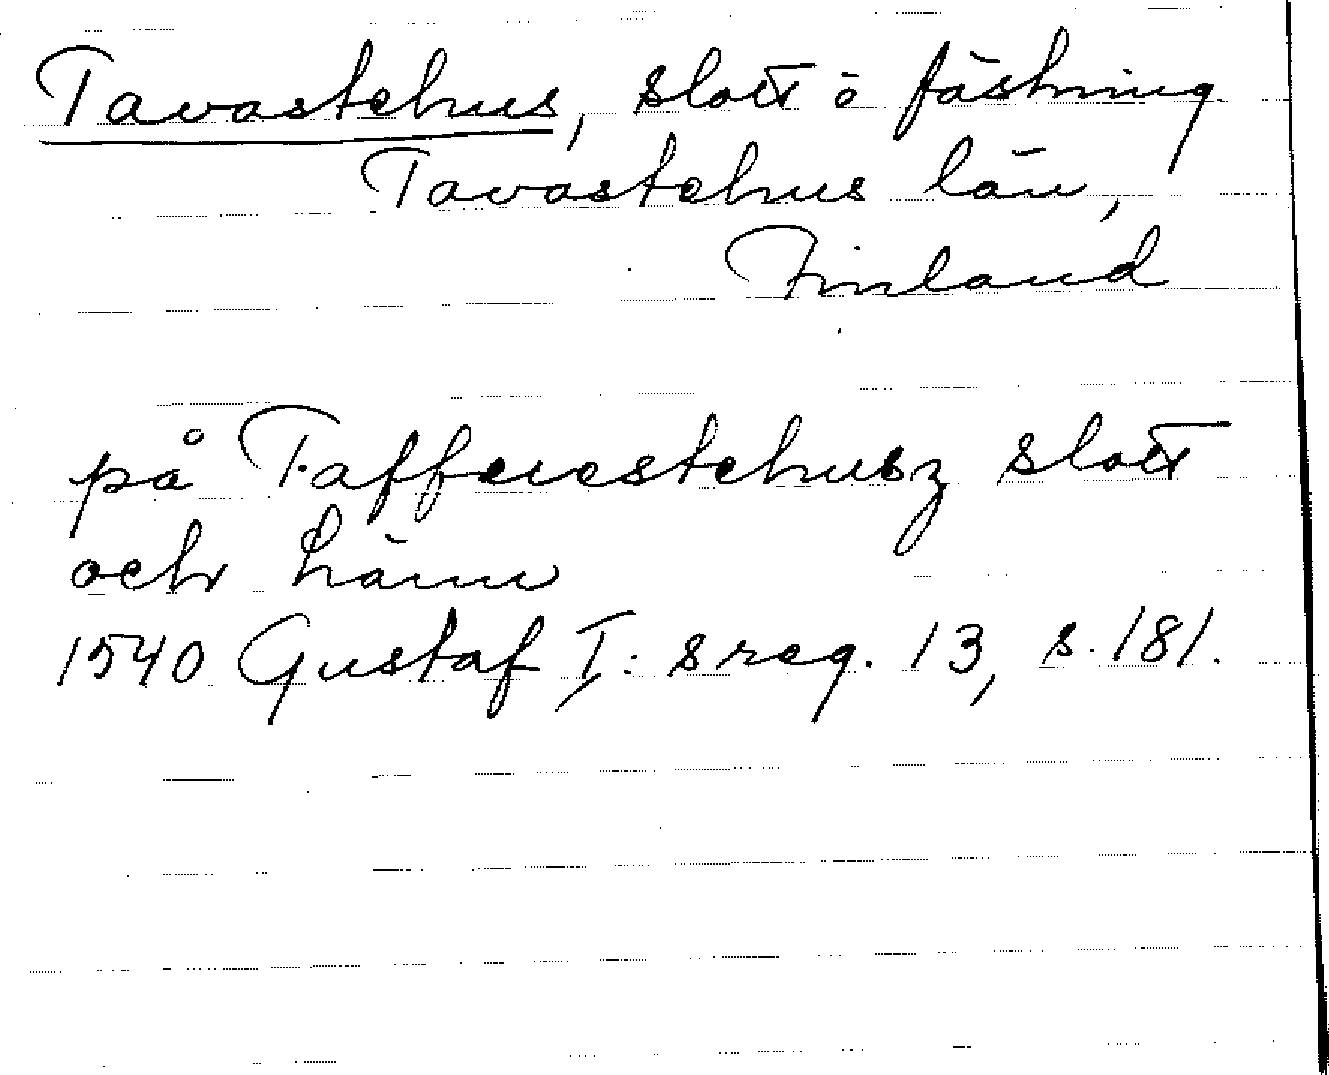 Tavastehus, slott o fästning
Tavastehus län,
Finland
på Taffeuestehusz slott
och hänn
1540 Gustaf I: s reg. 13, s. 181.